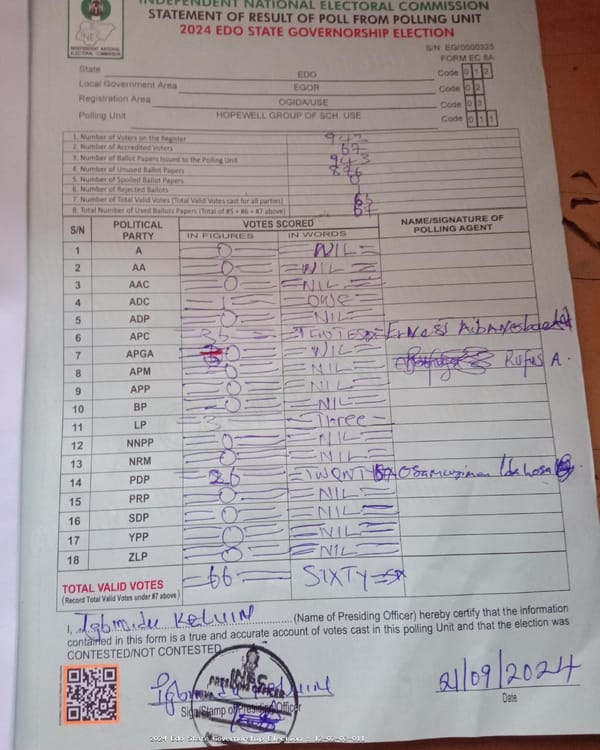 INDEPENDENT NATIONAL ELECTORAL COMMISSION
STATEMENT OF RESULT OF POLL FROM POLLING UNIT
2024 EDO STATE GOVERNORSHIP ELECTION
INEC
INDEPENDENT NATIONAL ELECTORAL COMMISSION
S/N EG/0000325
FORM EC 8A
State EDO Code 0 1 2
Local Government Area EGOR Code 0 2
Registration Area OGIDA/USE Code 0 3
Polling Unit HOPEWELL GROUP OF SCH. USE Code 0 1 1
1. Number of Voters on the Register 943
2. Number of Accredited Voters 67
3. Number of Ballot Papers Issued to the Polling Unit 943
4. Number of Unused Ballot Papers 876
5. Number of Spoiled Ballot Papers 0
6. Number of Rejected Ballots
7. Number of Total Valid Votes (Total Valid Votes cast for all parties)
8. Total Number of Used Ballots Papers (Total of #5 + #6 + #7 above) 67
S/N POLITICAL PARTY VOTES SCORED NAME/SIGNATURE OF POLLING AGENT
IN FIGURES IN WORDS
1 A 0 NIL
2 AA 0 NIL
3 AAC 0 NIL
4 ADC 1 ONE
5 ADP 0 NIL
6 APC
7 APGA 0 NIL
8 APM 0 NIL Rufus A.
9 APP 0 NIL
10 BP 0 NIL
11 LP 3 Three
12 NNPP 0 NIL
13 NRM 0 NIL
14 PDP 26
15 PRP 0 NIL
16 SDP 0 NIL
17 YPP 0 NIL
18 ZLP 0 NIL
TOTAL VALID VOTES 66 SIXTY SIX
(Record Total Valid Votes under #7 above)
I, KELVIN (Name of Presiding Officer) hereby certify that the information
contained in this form is a true and accurate account of votes cast in this polling Unit and that the election was
CONTESTED/NOT CONTESTED
INEC
PRESIDING OFFICER
21/09/2024
Sign/Stamp of Presiding Officer
Date
2024 Edo State Governorship Election - 12-02-03-011